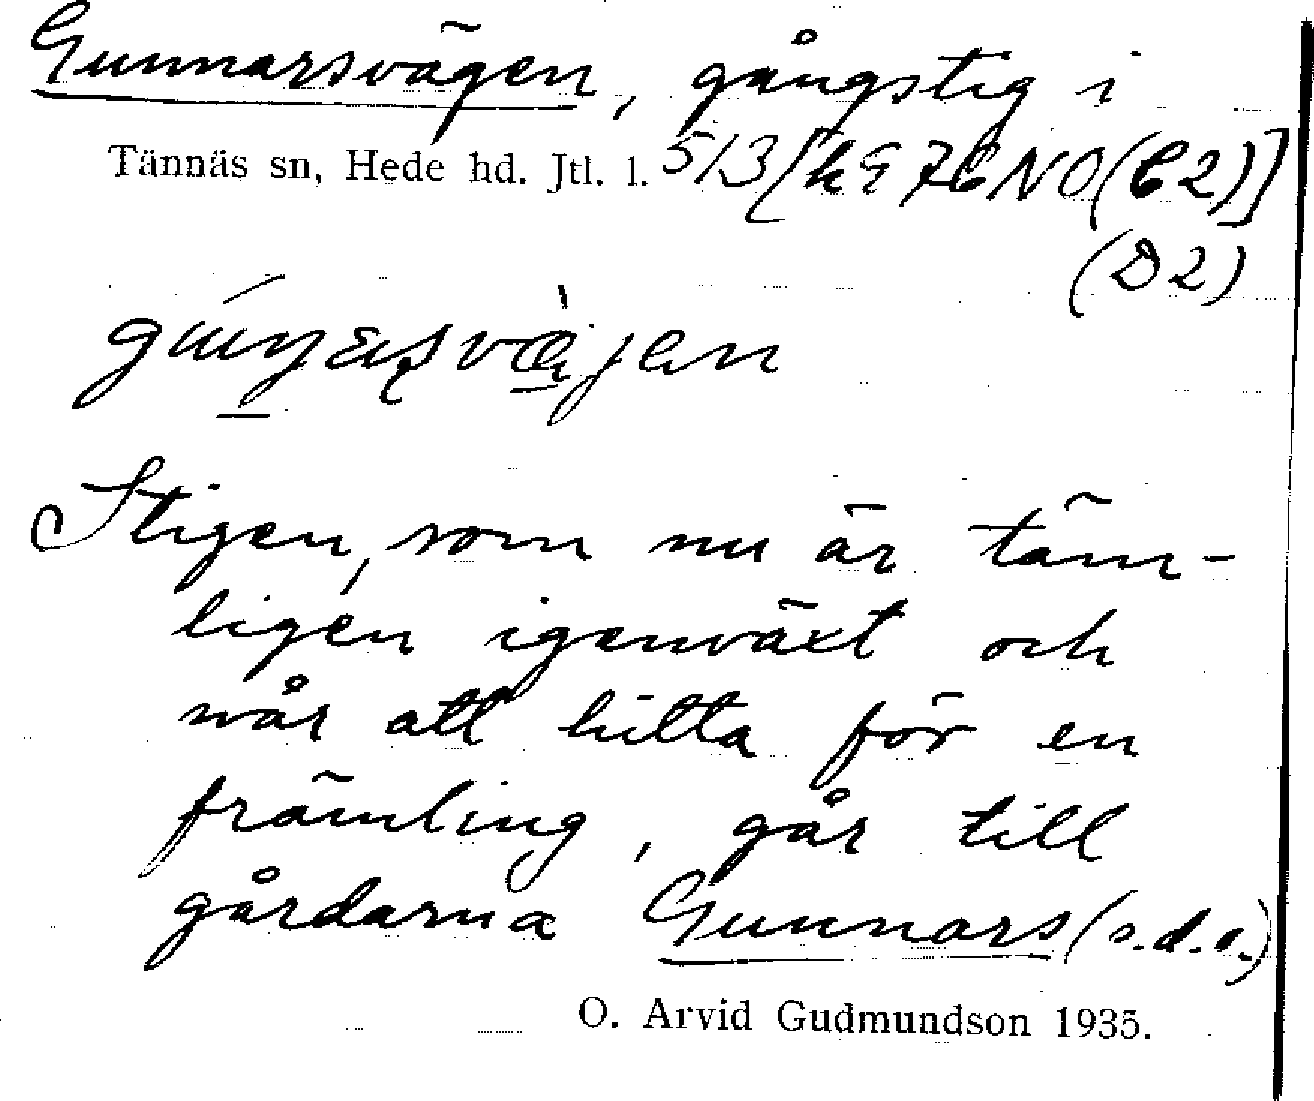 Gunnarsvägen, gångstig i
Tännäs sn, Hede hd. Jtl. l. 5/3 [k 97 NO (C2)]
(D2)
Stigen, som nu är täm-
ligen igenväxt och
svår att hitta för en
främling, går till
gårdarna Gunnars (s.d.o.)
O. Arvid Gudmundson 1935.